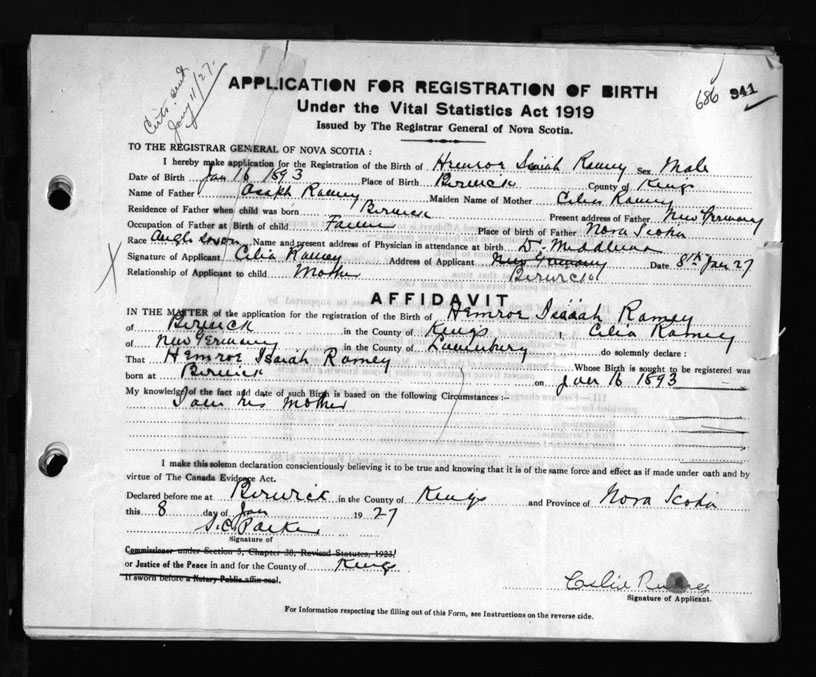 Certs. sent
Jany 11/27.
686 941
APPLICATION FOR REGISTRATION OF BIRTH
Under the Vital Statistics Act 1919
Issued by The Registrar General of Nova Scotia.
TO THE REGISTRAR GENERAL OF NOVA SCOTIA :
I hereby make application for the Registration of the Birth of Hemroe Isaiah Ramey Sex Male
Date of Birth Jan 16 1893 Place of Birth Berwick County of Kings
Name of Father Asaph Ramey Maiden Name of Mother Celia Ramey
Residence of Father when child was born Berwick Present address of Father New Germany
Occupation of Father at Birth of child Farmer Place of birth of Father Nova Scotia
Race Anglo Saxon Name and present address of Physician in attendance at birth Dr. Middlemas
Signature of Applicant Celia Ramey Address of Applicant New Germany Date 8th Jan 27
Relationship of Applicant to child Mother Berwick
AFFIDAVIT
IN THE MATTER of the application for the registration of the Birth of Hemroe Isaiah Ramey
of Berwick in the County of Kings I, Celia Ramey
of New Germany in the County of Lunenburg do solemnly declare :
That Hemroe Isaiah Ramey Whose Birth is sought to be registered was
born at Berwick on Jan 16 1893
My knowledge of the fact and date of such Birth is based on the following Circumstances :-
I am his Mother
I make this solemn declaration conscientiously believing it to be true and knowing that it is of the same force and effect as if made under oath and by
virtue of The Canada Evidence Act.
Declared before me at Berwick in the County of Kings and Province of Nova Scotia
this 8 day of Jan 1927
S.C. Parker
Signature of
Commissioner under Section 5, Chapter 38, Revised Statutes, 1923,
or Justice of the Peace in and for the County of Kings
If sworn before a Notary Public affix seal.
Celia Ramey
Signature of Applicant.
For Information respecting the filling out of this Form, see Instructions on the reverse side.